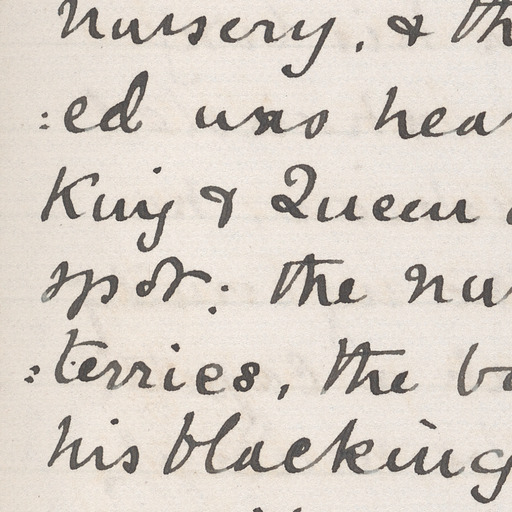 nursery, & th
:ed was hea
King & Queen
spot; the nu
:terries, the bo
his blacking